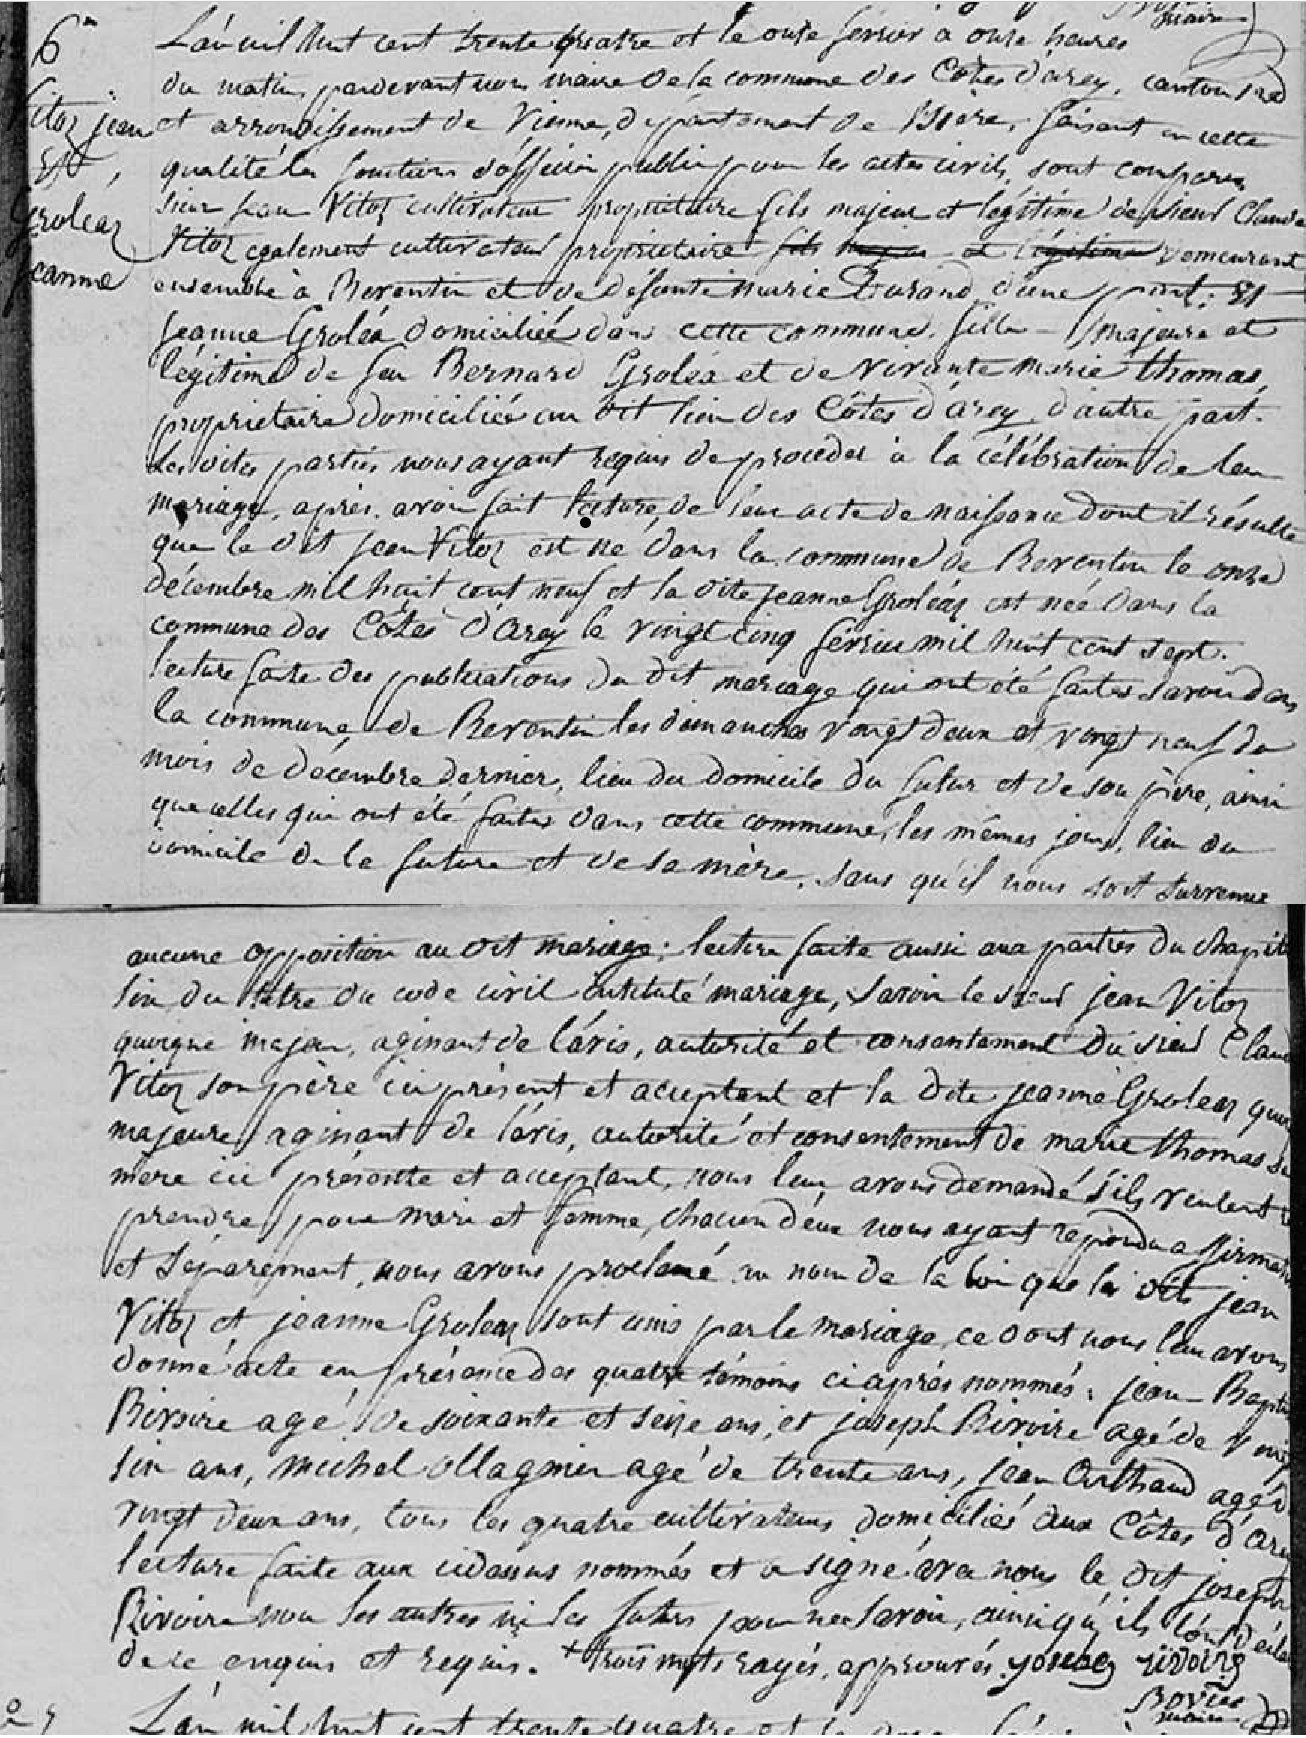 maire
6me
Vitoz jean
Et
Groleaz
jeanne
L'an mil huit cent trente quatre et le onze fevrier à onze heures
du matin, pardevant nous maire de la commune des Côtes d'arey, canton sud
et arrondissement de Vienne, département de l'Isère, faisant en cette
qualité les fonctions d'officier public pour les actes civils, sont comparus
sieur jean Vitoz cultivateur propriétaire fils majeur et légitime de sieur Claude
Vitoz egalement cultivateur propriétaire fils majeur et légitime demeurant
ensemble à Reventin et de défunte marie Durand d'une part; Et
jeanne Groléa domiciliée dans cette commune, fille majeure et
légitime de feu Bernard Groléa et de vivante marie thomas,
propriétaire domiciliée au dit lieu des Côtes d'arey d'autre part.
Les dites parties nous ayant requis de procéder à la célébration de leur
mariage, après avoir fait lecture de leur acte de naissance dont il résulte
que le dit jean Vitoz est né dans la commune de Reventin le onze
décembre mil huit cent neuf et la dite jeanne Groléaz est née dans la
commune des Côtes d'arey le vingt cinq février mil huit cent sept.
lecture faite des publications du dit mariage qui ont été faites savoir dans
la commune de Reventin les dimanches vingt deux et vingt neuf du
mois de décembre dernier, lieu du domicile du futur et de son père, ainsi
que celles qui ont été faites dans cette commune, les mêmes jours, lieu du
domicile de la future et de sa mère, sans qu'il nous soit survenue
aucune opposition au dit mariage; lecture faite aussi aux parties du chapitre
six du titre du code civil intitulé mariage, savoir le sieur jean Vitoz
quoique majeur, agissant de l'avis, autorité et consentement du sieur Claude
Vitoz son père ici présent et acceptant et la dite jeanne Groleaz quoiq
majeure, agissant de l'avis, autorité et consentement de marie thomas sa
mère ici présente et acceptant, nous leur avons demandé s'ils veulent se
prendre pour mari et femme, chacun d'eux nous ayant répondu affirmativ
et séparément, nous avons proclamé au nom de la loi que les dits jean
Vitoz et jeanne Groleaz sont unis par le mariage, ce dont nous leur avons
donné acte en présence des quatre témoins ci après nommés: jean-Baptis
Rivoire agé de soixante et seize ans, et joseph Rivoire agé de vingt
six ans, michel ollagnier agé de trente ans, jean Cuthaud agé de
vingt deux ans, tous les quatre cultivateurs domiciliés aux Côtes d'arey
lecture faite aux cidessus nommés et a signé avec nous le dit joseph
Rivoire non les autres ni les futurs pour ne savoir, ainsi qu'ils l'ont déclaré
de ce enquis et requis. + trois mots rayés, approuvés. joseph rivoire
maire
L'an mil huit cent trente quatre et le